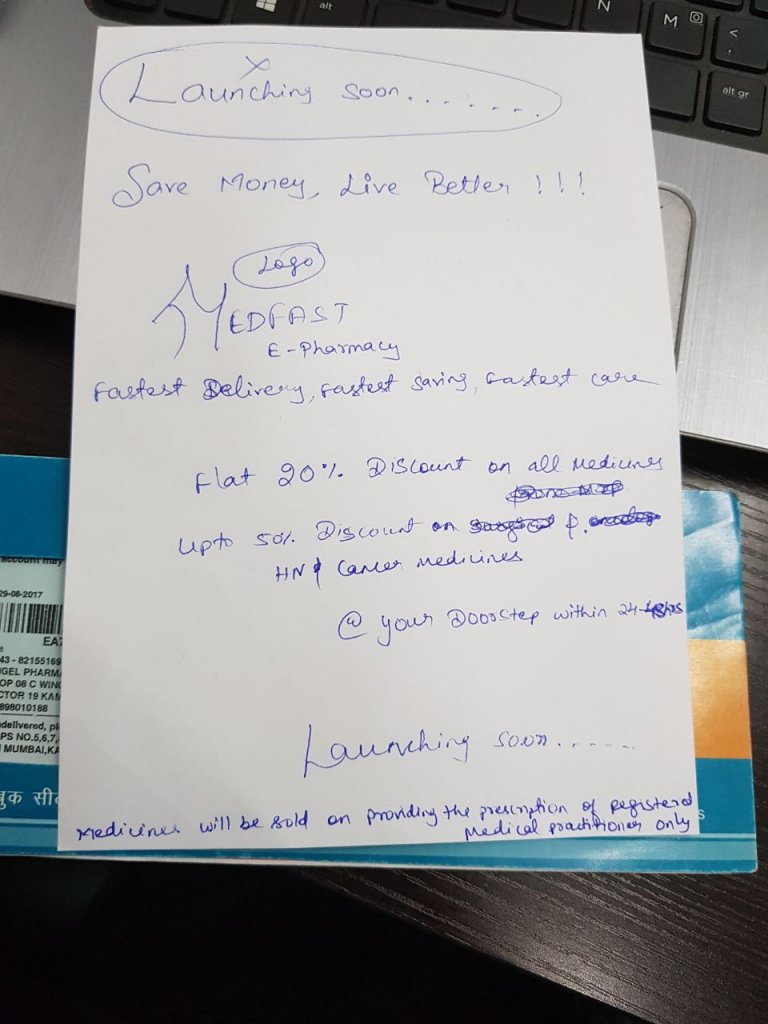 N
M
<
,
alt
alt gr
Launching soon.......
Save Money, Live Better !!!
Logo
MEDFAST
E-Pharmacy
Fastest Delivery, Fastest saving, Fastest care
Flat 20% Discount on all Medicines
Upto 50% Discount on
HN & Cancer medicines
@ your Doorstep within 24-48hrs
Launching soon......
Medicines will be sold on providing the prescription of registered
Medical practitioner only
account may
29-08-2017
EA7
43 - 82155169
GEL PHARMA
OP 08 C WING
CTOR 19 KAM
898010188
delivered, pl
PS NO.5,6,7,
MUMBAI,KA
बुक सी
s